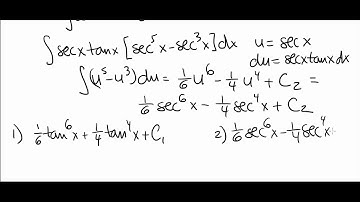 ∫ secx tanx [sec⁵x - sec³x] dx   u = sec x
du = secx tanx dx
∫(u⁵ - u³) du = 1/6 u⁶ - 1/4 u⁴ + C₂ =
1/6 sec⁶x - 1/4 sec⁴x + C₂
1) 1/6 tan⁶x + 1/4 tan⁴x + C₁   2) 1/6 sec⁶x - 1/4 sec⁴x